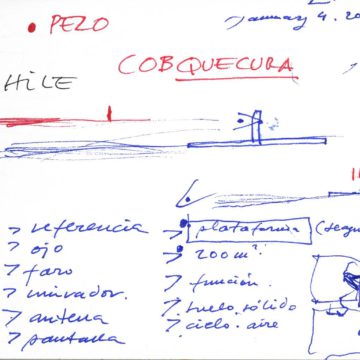 January 4. 20
• PEZO
COBQUECURA
HILE
> referencia
> ojo
> faro
> mirador.
> antena
> pantalla
plataforma
> 200 m²
> función.
> suelo sólido
> cielo. aire